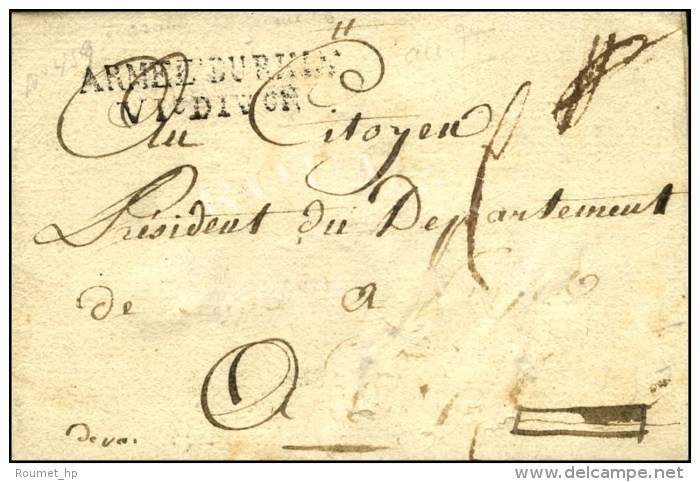 ARMÉE DU RHIN
VIe DIVon
Au Citoyen
Président du Département
de a
A
Roumet_hp
delcampe.net